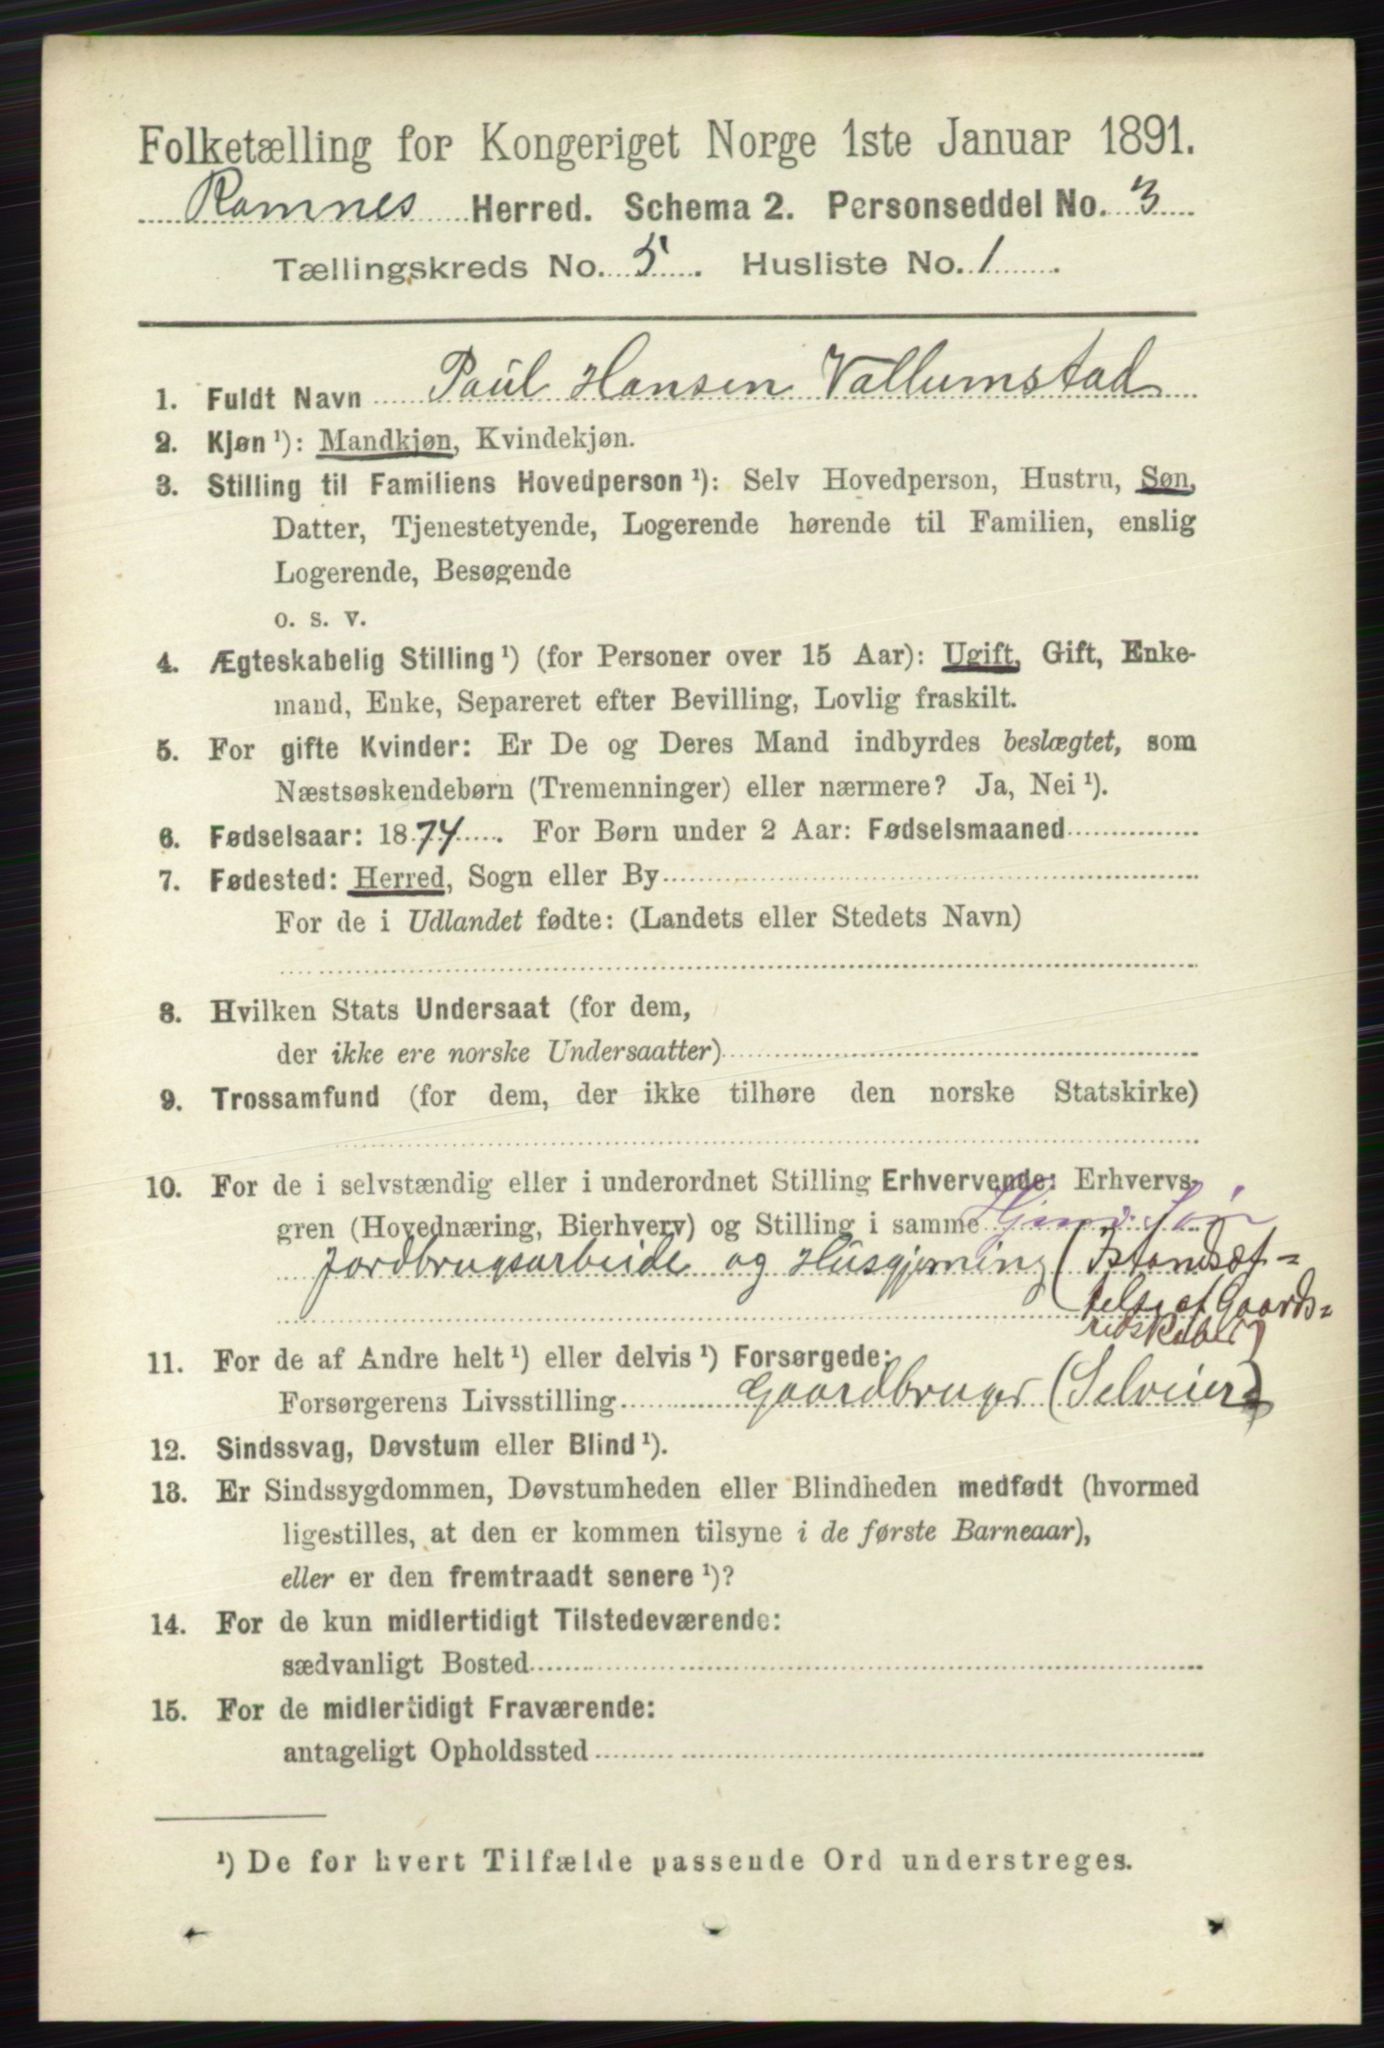 Folketælling for Kongeriget Norge 1ste Januar 1891.
Ramnes Herred. Schema 2. Personseddel No. 3
Tællingskreds No. 5. Husliste No. 1.
1. Fuldt Navn Paul Hansen Vallumstad
2. Kjøn ¹): Mandkjøn, Kvindekjøn.
3. Stilling til Familiens Hovedperson ¹): Selv Hovedperson, Hustru, Søn,
Datter, Tjenestetyende, Logerende hørende til Familien, enslig
Logerende, Besøgende
o. s. v.
4. Ægteskabelig Stilling ¹) (for Personer over 15 Aar): Ugift, Gift, Enke-
mand, Enke, Separeret efter Bevilling, Lovlig fraskilt.
5. For gifte Kvinder: Er De og Deres Mand indbyrdes beslægtet, som
Næstsøskendebørn (Tremenninger) eller nærmere? Ja, Nei ¹).
6. Fødselsaar: 1874. For Børn under 2 Aar: Fødselsmaaned
7. Fødested: Herred, Sogn eller By
For de i Udlandet fødte: (Landets eller Stedets Navn)
8. Hvilken Stats Undersaat (for dem,
der ikke ere norske Undersaatter)
9. Trossamfund (for dem, der ikke tilhøre den norske Statskirke)
10. For de i selvstændig eller i underordnet Stilling Erhvervende: Erhvervs-
gren (Hovednæring, Bierhverv) og Stilling i samme
Jordbrugsarbeide og Husgjerning (Istandsæt-
telse af Gaards-
redskaber)
11. For de af Andre helt ¹) eller delvis ¹) Forsørgede:
Forsørgerens Livsstilling Gaardbruger (Selveier)
12. Sindssvag, Døvstum eller Blind ¹).
13. Er Sindssygdommen, Døvstumheden eller Blindheden medfødt (hvormed
ligestilles, at den er kommen tilsyne i de første Barneaar),
eller er den fremtraadt senere ¹)?
14. For de kun midlertidigt Tilstedeværende:
sædvanligt Bosted
15. For de midlertidigt Fraværende:
antageligt Opholdssted
¹) De for hvert Tilfælde passende Ord understreges.